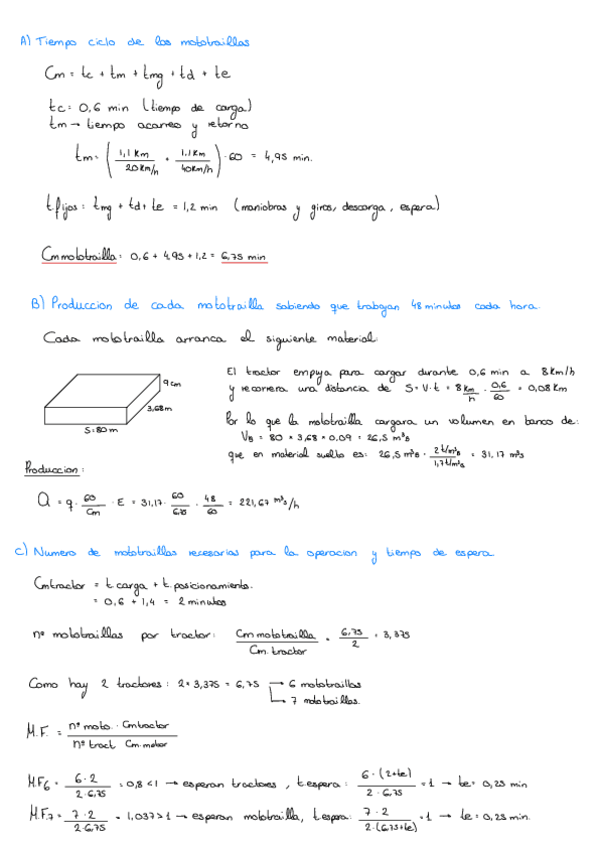 A) Tiempo ciclo de las mototraillas
Cm = tc + tm + tmg + td + te
tc = 0,6 min (tiempo de carga)
tm → tiempo acarreo y retorno
tm = (1,1 km / 20 km/h + 1.1 km / 40 km/h) · 60 = 4,95 min.
t.fijos: tmg + td + te = 1,2 min (maniobras y giros, descarga, espera)
Cm mototrailla: 0,6 + 4,95 + 1,2 = 6,75 min
B) Produccion de cada mototrailla sabiendo que trabajan 48 minutos cada hora.
Cada mototrailla arranca el siguiente material:
9 cm
3,68 m
S: 80 m
El tractor empuja para cargar durante 0,6 min a 8 km/h
y recorrera una distancia de S = V · t = 8 km/h · 0,6/60 = 0,08 km
Por lo que la mototrailla cargara un volumen en banco de:
VB = 80 × 3,68 × 0.09 = 26,5 m³B
que en material suelto es: 26,5 m³B · 2 t/m³B / 1,7 t/m³s = 31,17 m³s
Produccion:
Q = q · 60/Cm · E = 31,17 · 60/6,75 · 48/60 = 221,67 m³s/h
C) Numero de mototraillas necesarias para la operacion y tiempo de espera
Cm tractor = t carga + t. posicionamiento.
= 0,6 + 1,4 = 2 minutos
nº mototraillas por tractor: Cm mototrailla / Cm. tractor = 6,75 / 2 = 3,375
Como hay 2 tractores: 2 * 3,375 = 6,75 → 6 mototraillas
→ 7 mototraillas.
M.F. = nº moto. · Cm tractor / nº tract Cm motor
M.F6 = 6 · 2 / 2 · 6,75 = 0,8 < 1 → esperan tractores, t espera: 6 · (2+te) / 2 · 6,75 = 1 → te = 0,25 min
M.F.7 = 7 · 2 / 2 · 6,75 = 1,037 > 1 → esperan mototrailla, t espera: 7 · 2 / 2 · (6,75+te) = 1 → te = 0,25 min.